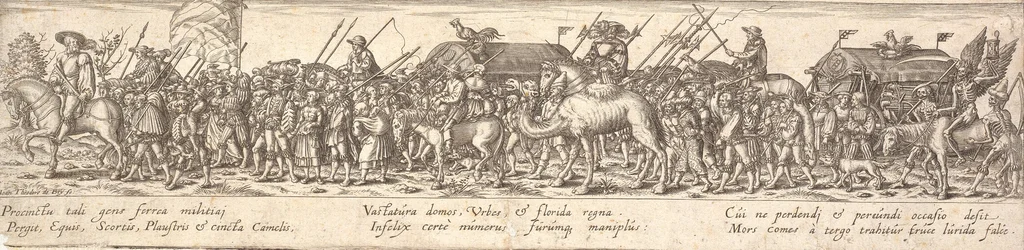 Ioan Theodor de Bry fe
Procinctu tali gens ferrea militiaj
Pergit, Equis, Scortis, Plaustris & cincta Camelis,
Vastatura domos, Urbes, & florida regna.
Infelix certe numerus furumq; maniplus:
Cui ne perdendj & pereundi occasio desit
Mors comes à tergo trahitur truce lurida falce.